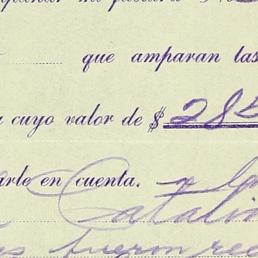 que amparan las
cuyo valor de $ 285
arle en cuenta. y la
Catalin
fueron rec